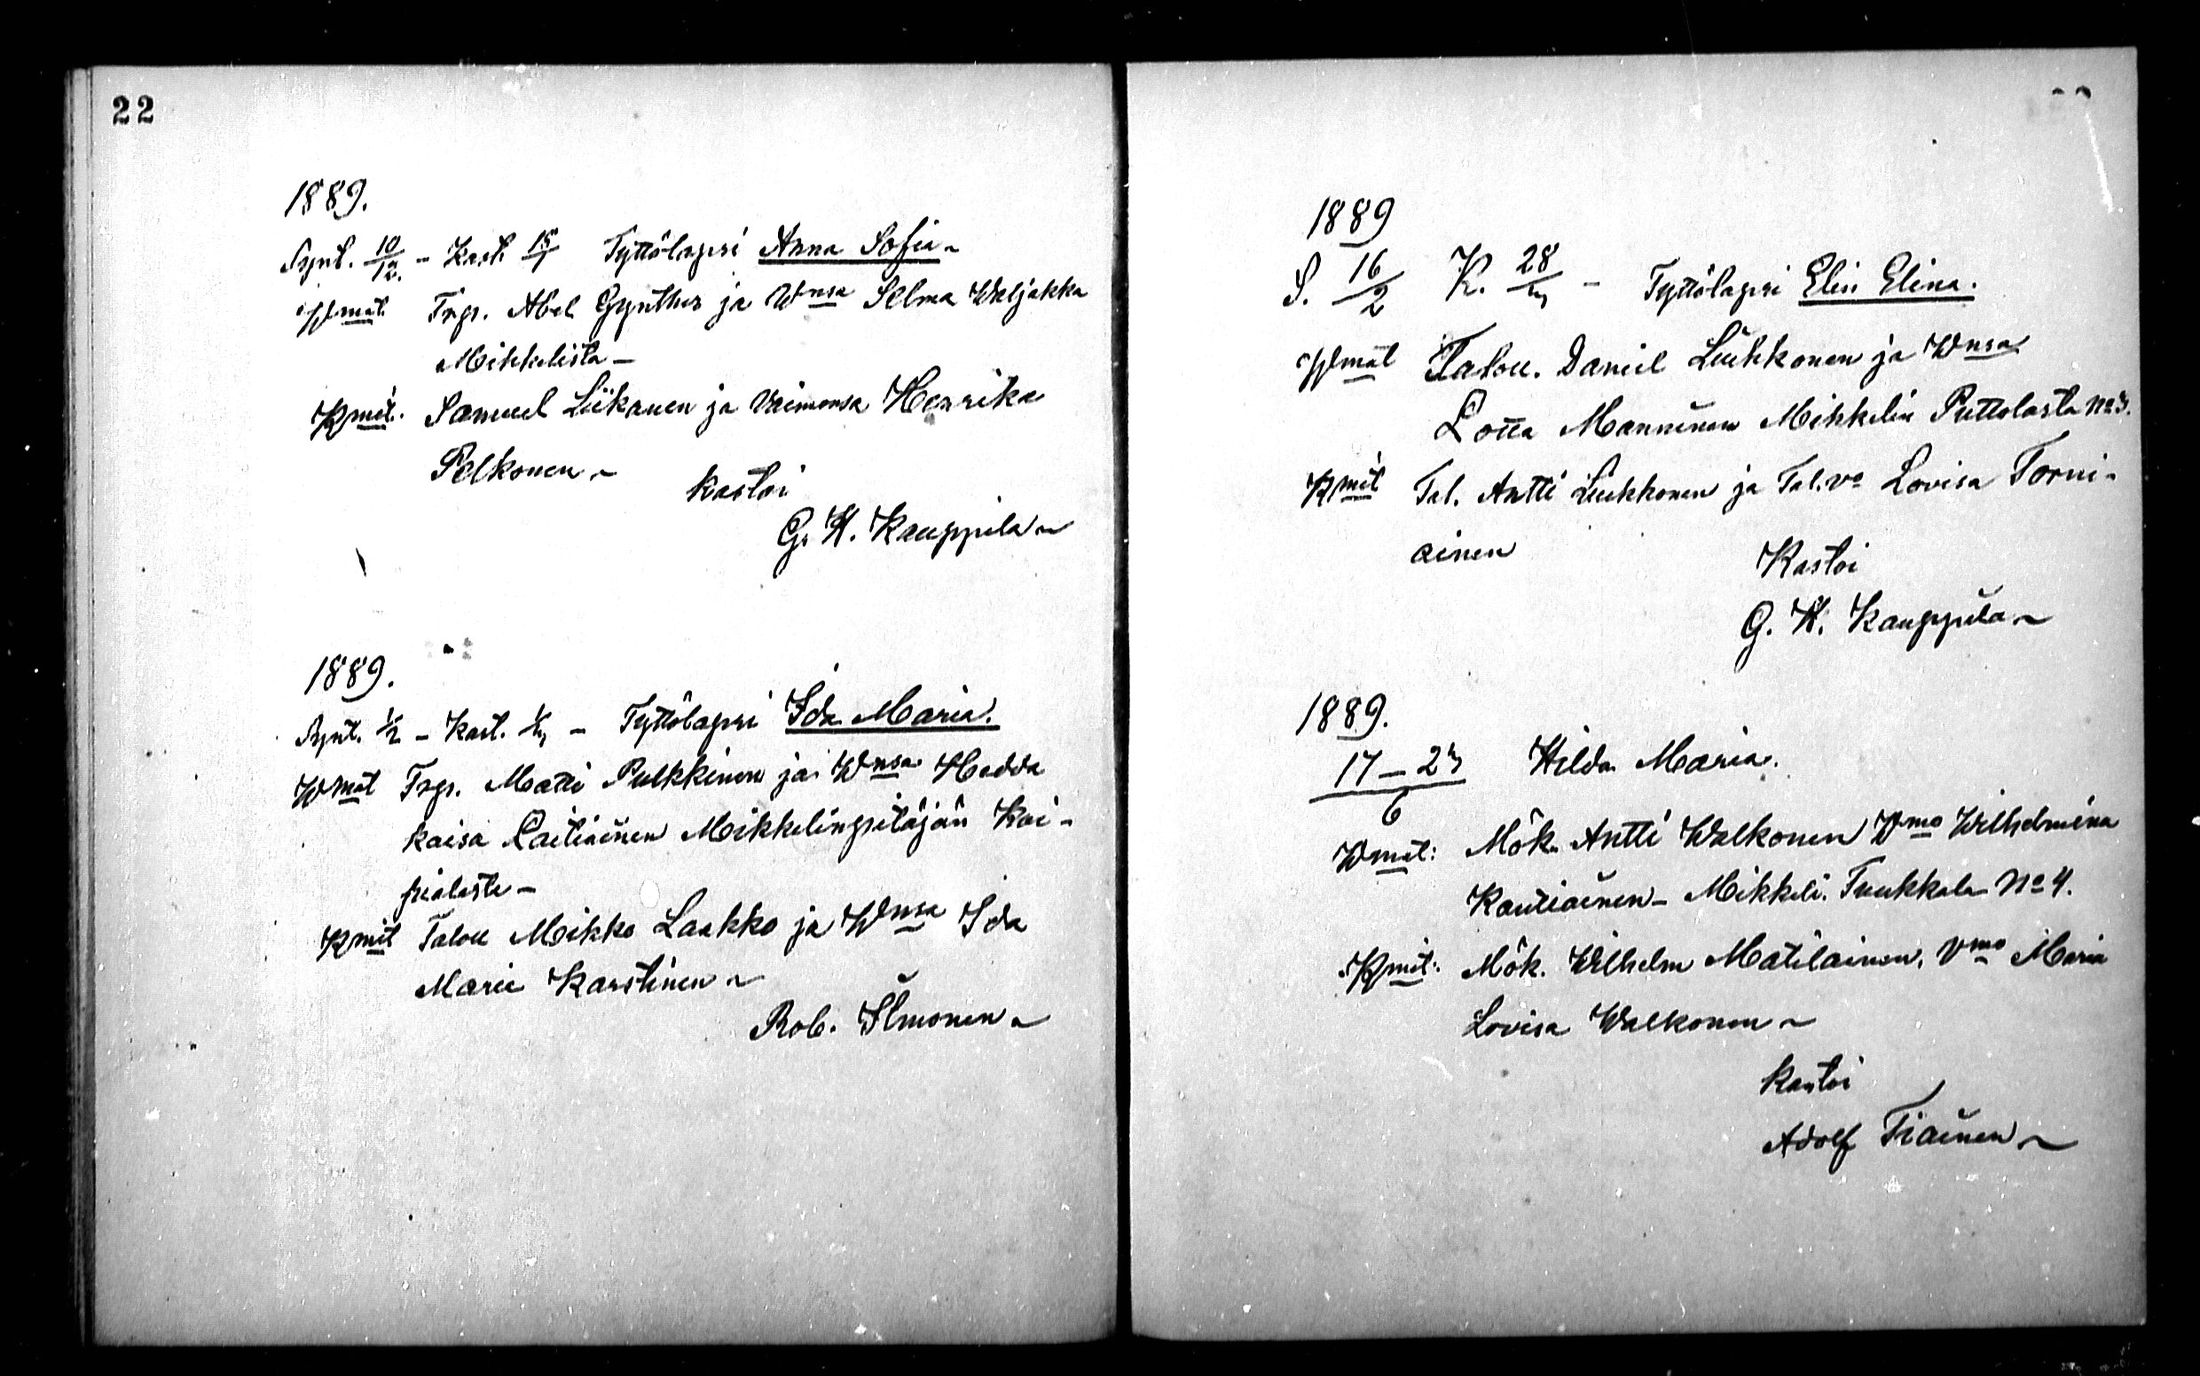 22
1889.
Synt. 10/12. - Kast. 15/1 Tyttölapsi Anna Sofia -
Wmat. Trp. Abel Gynther ja Wnsa Selma Waljakka
Mikkelistä -
Kmit. Samuel Liikanen ja Vaimonsa Henrika
Pelkonen -
Kastoi
G. H. Kauppila -
1889.
Synt. 1/2 - Kast. - Tyttölapsi Ida Maria.
Wmat Trp. Matti Pulkkinen ja Wnsa Hedda
Kaisa Laitiainen Mikkelinpitäjän Kai-
pialasta -
Kmit Talou Mikko Laukko ja Wnsa Ida
Maria Karstinen -
Rob. Ilmonen -
1889
S. 16/2 K. 28/3 - Tyttölapsi Elin Elina.
Wmat Talou. Daniel Liukkonen ja Wnsa
Lotta Manninen Mikkelin Puttolasta No 3.
Kmit Tal. Antti Liukkonen ja Tal. vo Lovisa Torni-
ainen
Kastoi
G. H. Kauppila -
1889.
17 - 23 Hilda Maria.
6
Wmat: Mök. Antti Walkonen Vmo Wilhelmina
Kautiainen - Mikkeli. Tuukkala No 4.
Kmit: Mök. Wilhelm Matilainen, Vmo Maria
Lovisa Walkonen -
Kastoi
Adolf Tiainen -